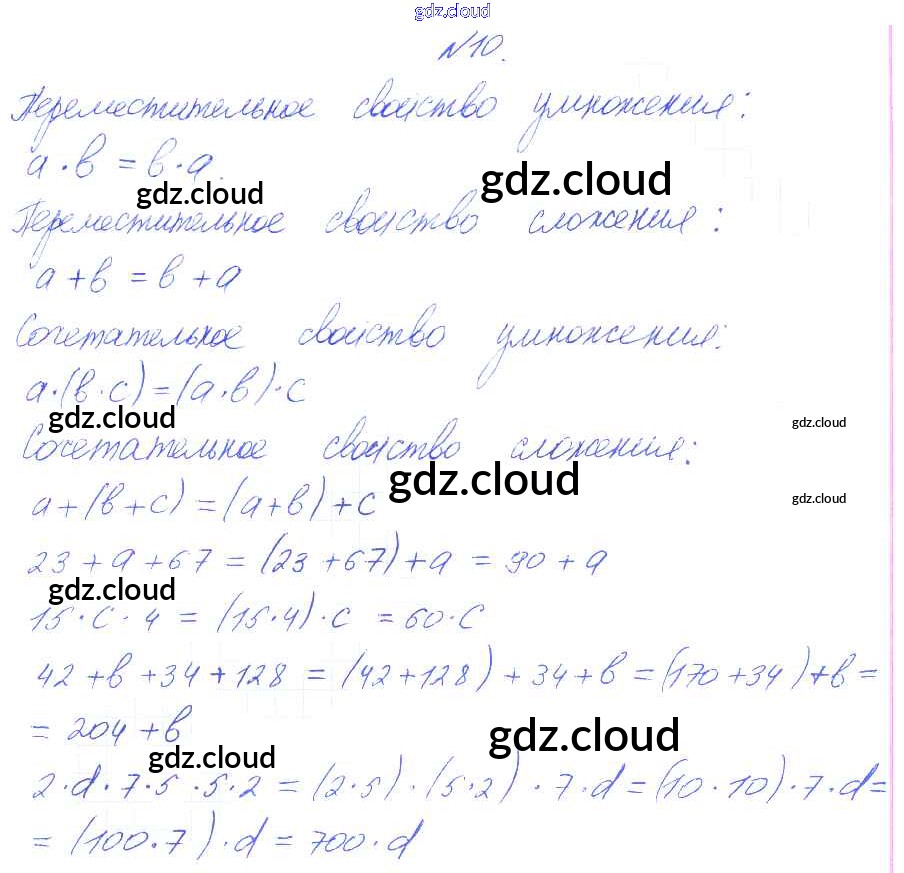 gdz.cloud
№10.
Переместительное свойство умножения:
a · b = b · a.
gdz.cloud
gdz.cloud
Переместительное свойство сложения:
a + b = b + a
Сочетательное свойство умножения:
a · (b · c) = (a · b) · c
gdz.cloud
gdz.cloud
Сочетательное свойство сложения:
gdz.cloud
a + (b + c) = (a + b) + c
gdz.cloud
23 + a + 67 = (23 + 67) + a = 90 + a
gdz.cloud
15 · c · 4 = (15 · 4) · c = 60 · c
42 + b + 34 + 128 = (42 + 128) + 34 + b = (170 + 34) + b =
= 204 + b
gdz.cloud
gdz.cloud
2 · d · 7 · 5 · 5 · 2 = (2 · 5) · (5 · 2) · 7 · d = (10 · 10) · 7 · d =
= (100 · 7) · d = 700 · d